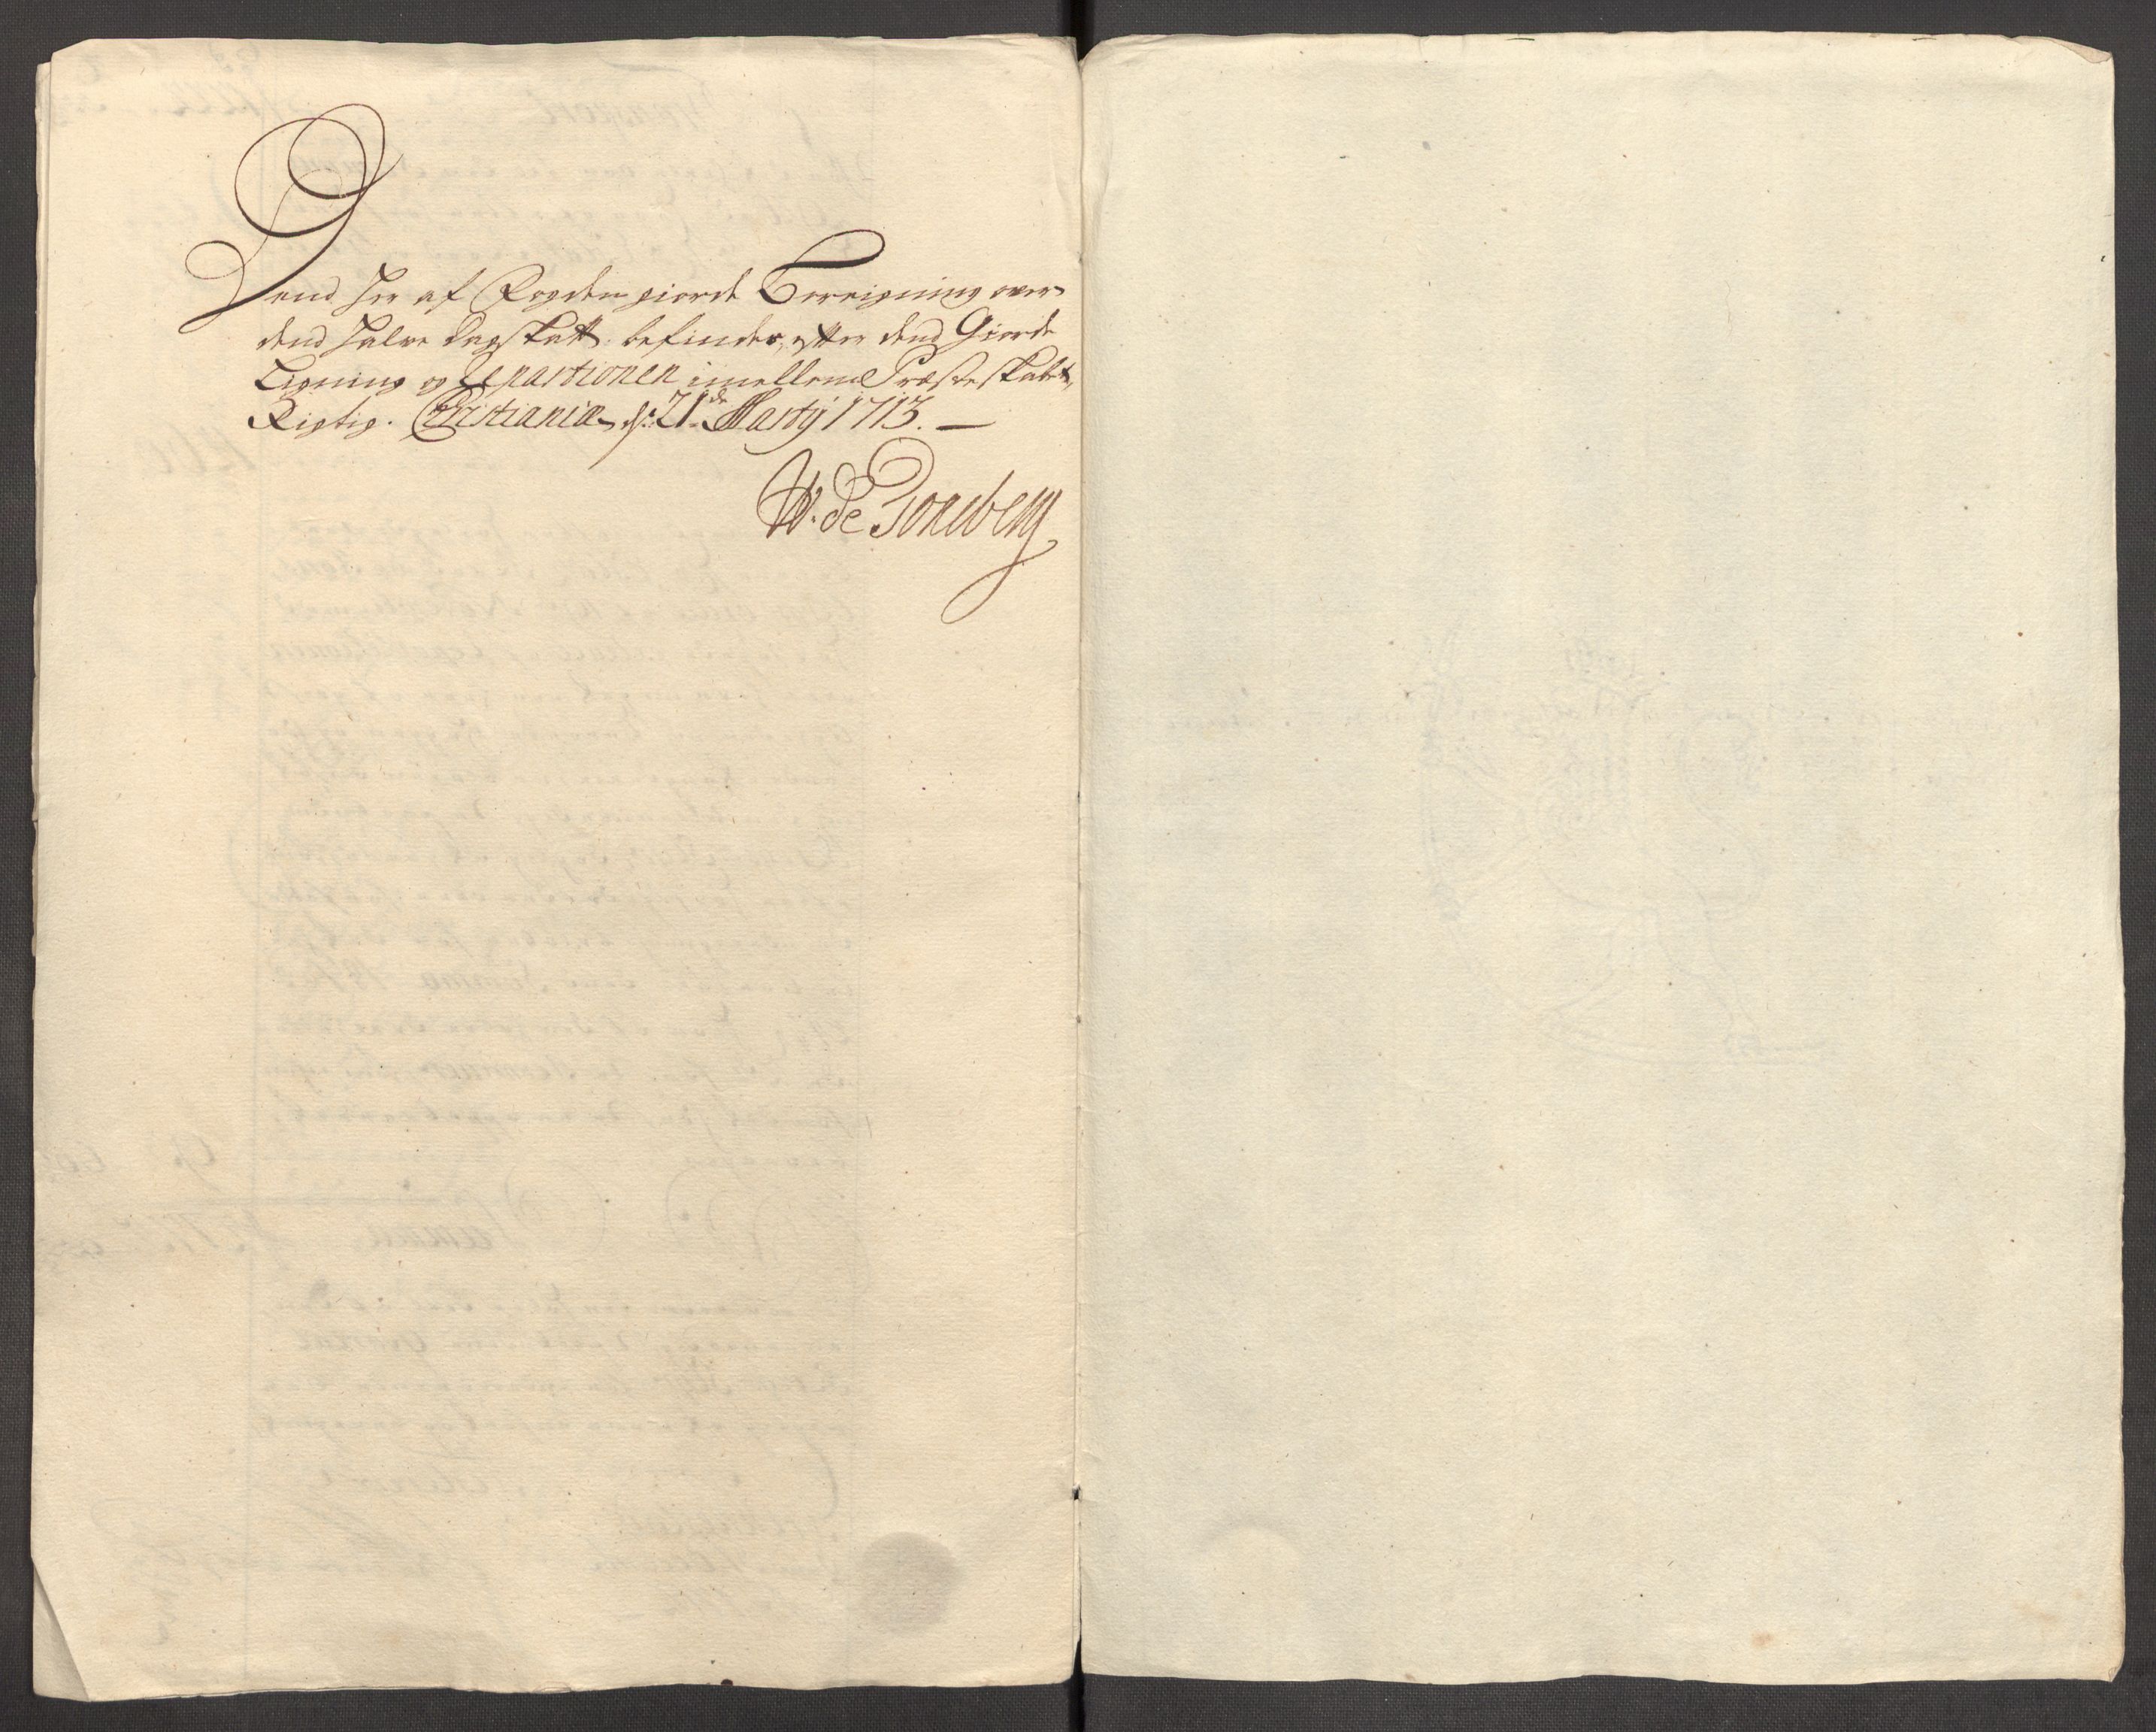 Dend her af Fogden giorde Bereigning over
dend halve Dagskatt befindes, efter dend Giorde
Ligning og Repartionen imellem Præsteskabet,
Rigtig. Christiania d: 21de Martij 1713. —
W. de Tonsberg